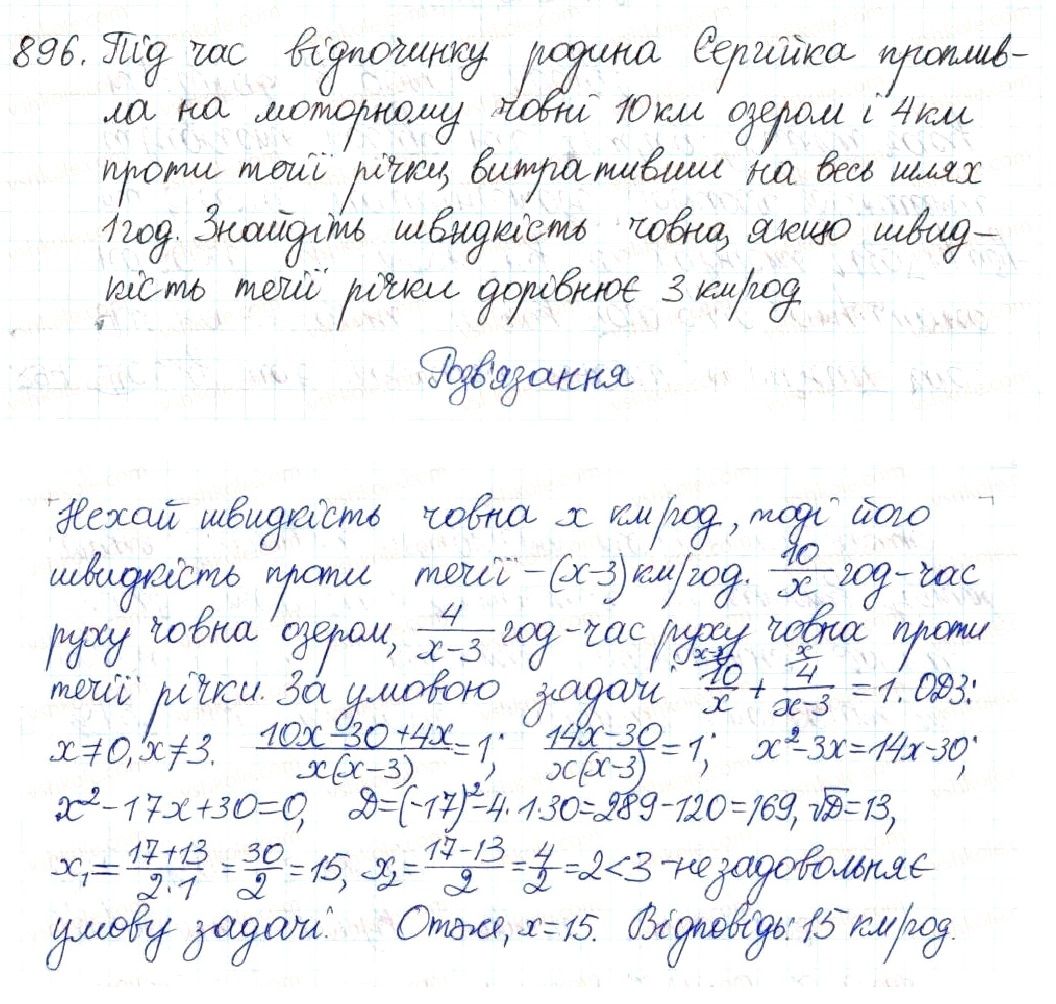 896. Під час відпочинку родина Сергійка проплив-
ла на моторному човні 10 км озером і 4 км
проти течії річки, витративши на весь шлях
1 год. Знайдіть швидкість човна, якщо швид-
кість течії річки дорівнює 3 км/год
Розв'язання
Нехай швидкість човна x км/год, тоді його
швидкість проти течії - (x-3) км/год. 10/x год - час
руху човна озером, 4/(x-3) год - час руху човна проти
течії річки. За умовою задачі 10/x + 4/(x-3) = 1. ОДЗ:
x≠0, x≠3. (10x-30+4x)/(x(x-3)) = 1; (14x-30)/(x(x-3)) = 1; x²-3x=14x-30;
x²-17x+30=0, D=(-17)²-4·1·30=289-120=169, √D=13,
x₁=(17+13)/(2·1)=30/2=15, x₂=(17-13)/2=4/2=2<3 - не задовольняє
умову задачі. Отже, x=15. Відповідь: 15 км/год.